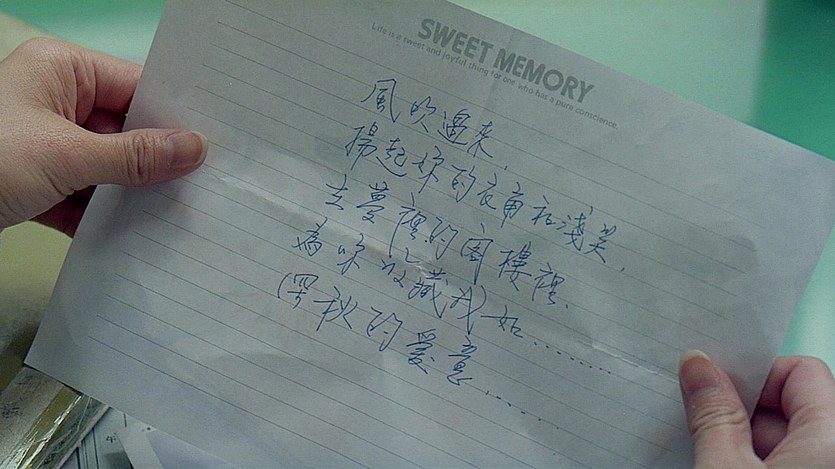 SWEET MEMORY
Life is a sweet and joyful thing for one who has a pure conscience.
風吹過來,
揚起妳的衣角和淺笑,
在夢裡的閣樓裡,
為妳收藏我如..........
深秋的愛意......